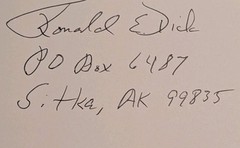 Ronald E Dick
PO Box 6487
Sitka, AK 99835